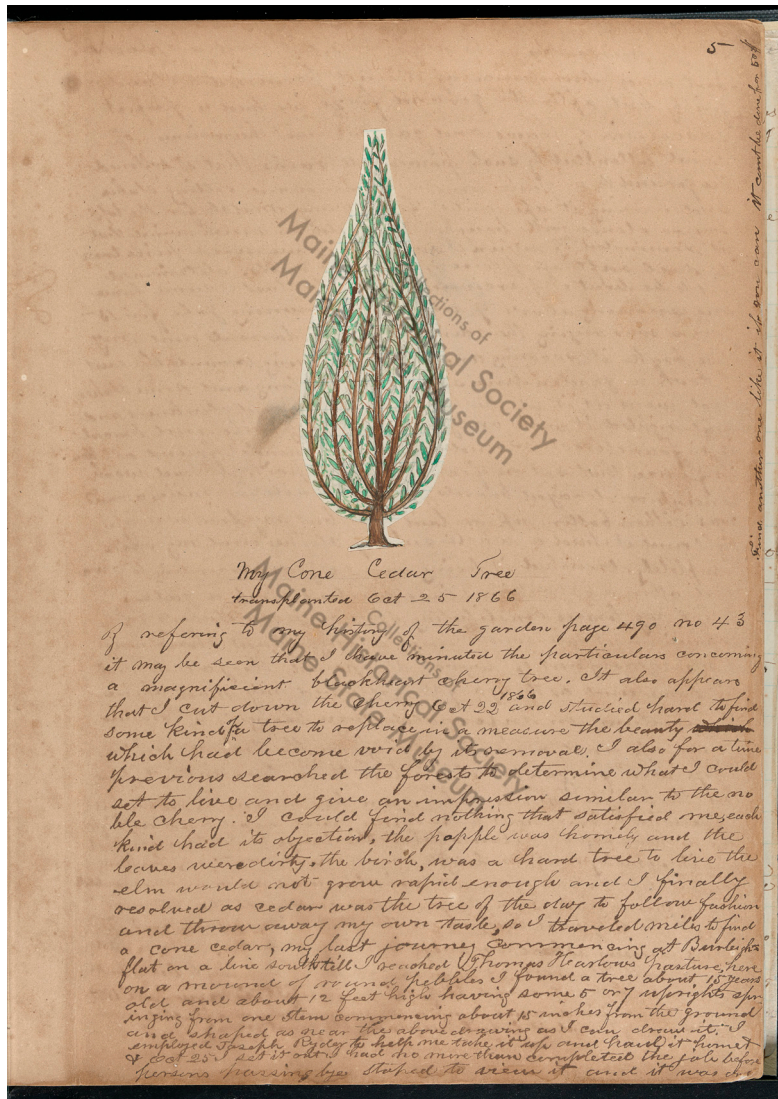 5
My Cone Cedar Tree
transplanted Oct 25 1866
B refering to my history of the garden page 490 no 43
it may be seen that I have minuted the particulars concerning
a magnifisient blackheart cherry tree. It also appears
that I cut down the cherry Oct 22 1866 and studied hard to find
some kind of a tree to replace in a measure the beauty which
which had become void by its removal. I also for a time
previous searched the forests to determine what I could
set to live and give an impression similar to the no
ble cherry. I could find nothing that satisfied me, each
kind had its objection, the popple was homely and the
leaves were dirty, the birch, was a hard tree to live the
elm would not grow rapid enough and I finally
resolved as cedar was the tree of the day to follow fashion
and throw away my own taste, so I traveled miles to find
a cone cedar, my last journey commencing at Burleighs
flat on a line south till I reached Thomas Harlows pasture, here
on a mound of round pebbles I found a tree about 15 years
old and about 12 feet high having some 5 or 7 uprights spr
inging from one stem commencing about 15 inches from the ground
and shaped as near the above drawing as I can draw it. I
employed Joseph Ryder to help me take it up and haul it home &
& Oct 25 I set it out I had no more than completed the job before
persons passing bye stoped to view it and it was
Find another one like it if you can it cant be done for 50$
Collections of
Maine Historical Society
Maine State Museum
Collections of
Maine Historical Society
Maine State Museum